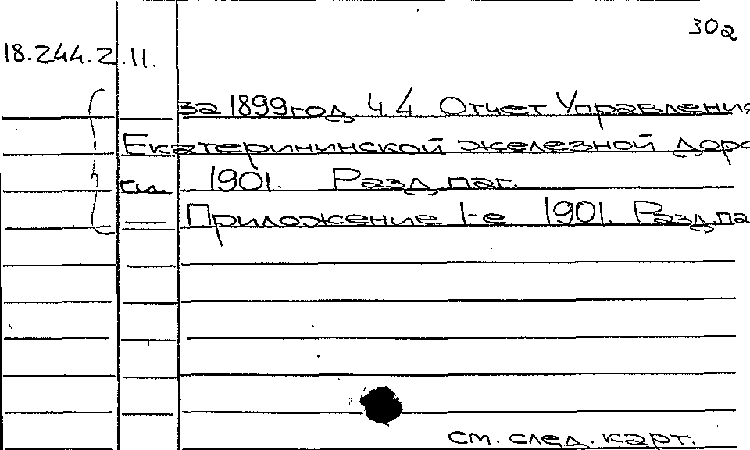 30а
18.244.2.11.
за 1899 год Ч.4 Отчет Управления
Екатерининской железной доро
ги 1901. Разд. паг.
— Приложение 1-е 1901. Разд. па
см. след. карт.